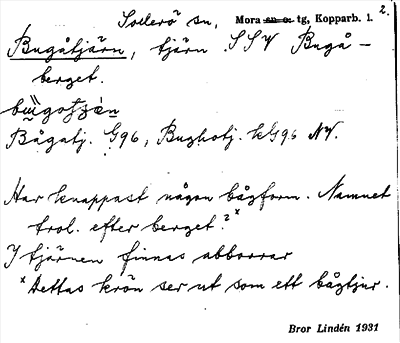 Sollerö sn, Mora sn o. tg, Kopparb. l. 2.
Bugåtjärn, tjärn SSV Bugå-
berget.
Bågatj. G96, Bughotj. kG96 NV.
Har knappast någon bågform. Namnet
trol. efter berget.? x
I tjärnen finnas abborrar
x Dettas krön ser ut som ett bågtjur.
Bror Lindén 1931